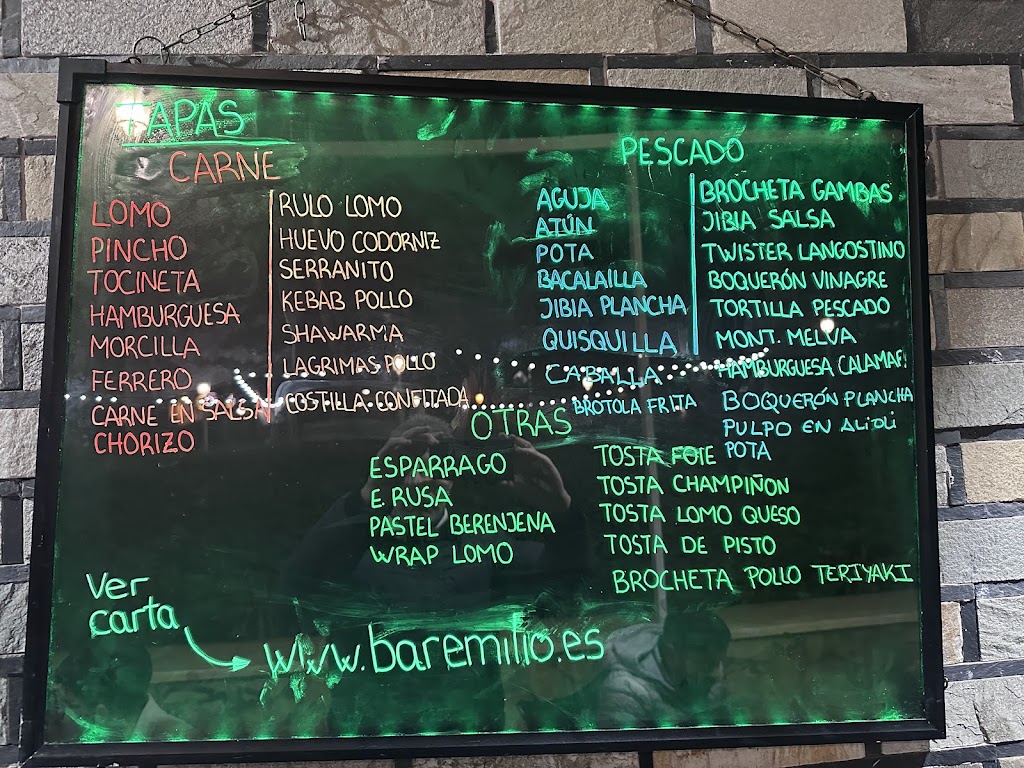 TAPAS
CARNE
LOMO
PINCHO
TOCINETA
HAMBURGUESA
MORCILLA
FERRERO
CARNE EN SALSA
CHORIZO
RULO LOMO
HUEVO CODORNIZ
SERRANITO
KEBAB POLLO
SHAWARMA
LAGRIMAS POLLO
COSTILLA CONFITADA
PESCADO
AGUJA
ATÚN
POTA
BACALAILLA
JIBIA PLANCHA
QUISQUILLA
CABALLA
BROTOLA FRITA
BROCHETA GAMBAS
JIBIA SALSA
TWISTER LANGOSTINO
BOQUERÓN VINAGRE
TORTILLA PESCADO
MONT. MELVA
HAMBURGUESA CALAMAR
BOQUERÓN PLANCHA
PULPO EN ALIOLI
POTA
OTRAS
ESPARRAGO
E. RUSA
PASTEL BERENJENA
WRAP LOMO
TOSTA FOIE
TOSTA CHAMPIÑON
TOSTA LOMO QUESO
TOSTA DE PISTO
BROCHETA POLLO TERIYAKI
Ver
carta
www.baremilio.es